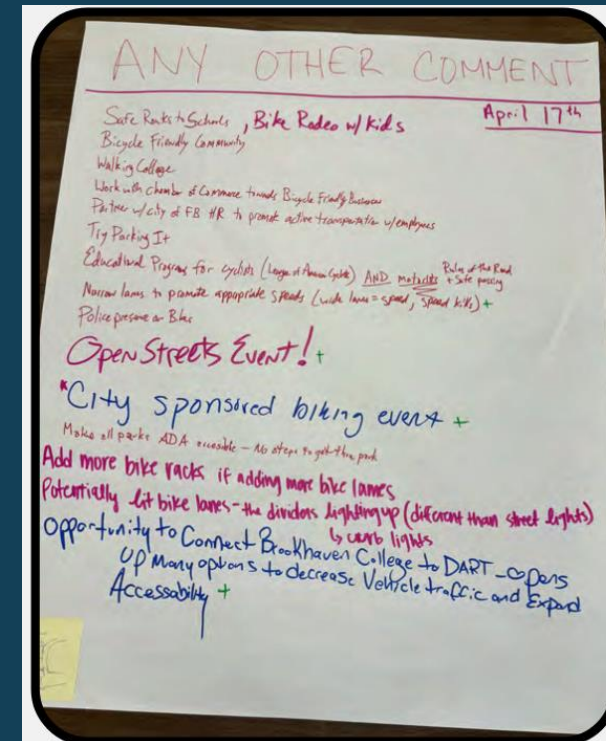 ANY OTHER COMMENT
April 17th
Safe Routes to Schools, Bike Rodeo w/ Kids
Bicycle Friendly Community
Walking College
Work with chamber of Commerce towards Bicycle Friendly Business
Partner w/ city of FB HR to promote active transportation w/ employees
Try Parking It
Educational Programs for cyclists (League of American Cyclists) AND motorists Rules of the Road + Safe passing
Narrow lanes to promote appropriate speeds (wide lanes = speed, speed kills) +
Police presence on Bikes
Open Streets Event! +
*City sponsored biking event +
Make all parks ADA accessible - No steps to get to the park
Add more bike racks if adding more bike lanes
Potentially lit bike lanes - the dividers lighting up (different than street lights)
↳ curb lights
Opportunity to Connect Brookhaven College to DART - opens
up Many options to decrease Vehicle traffic and Expand
Accessability +